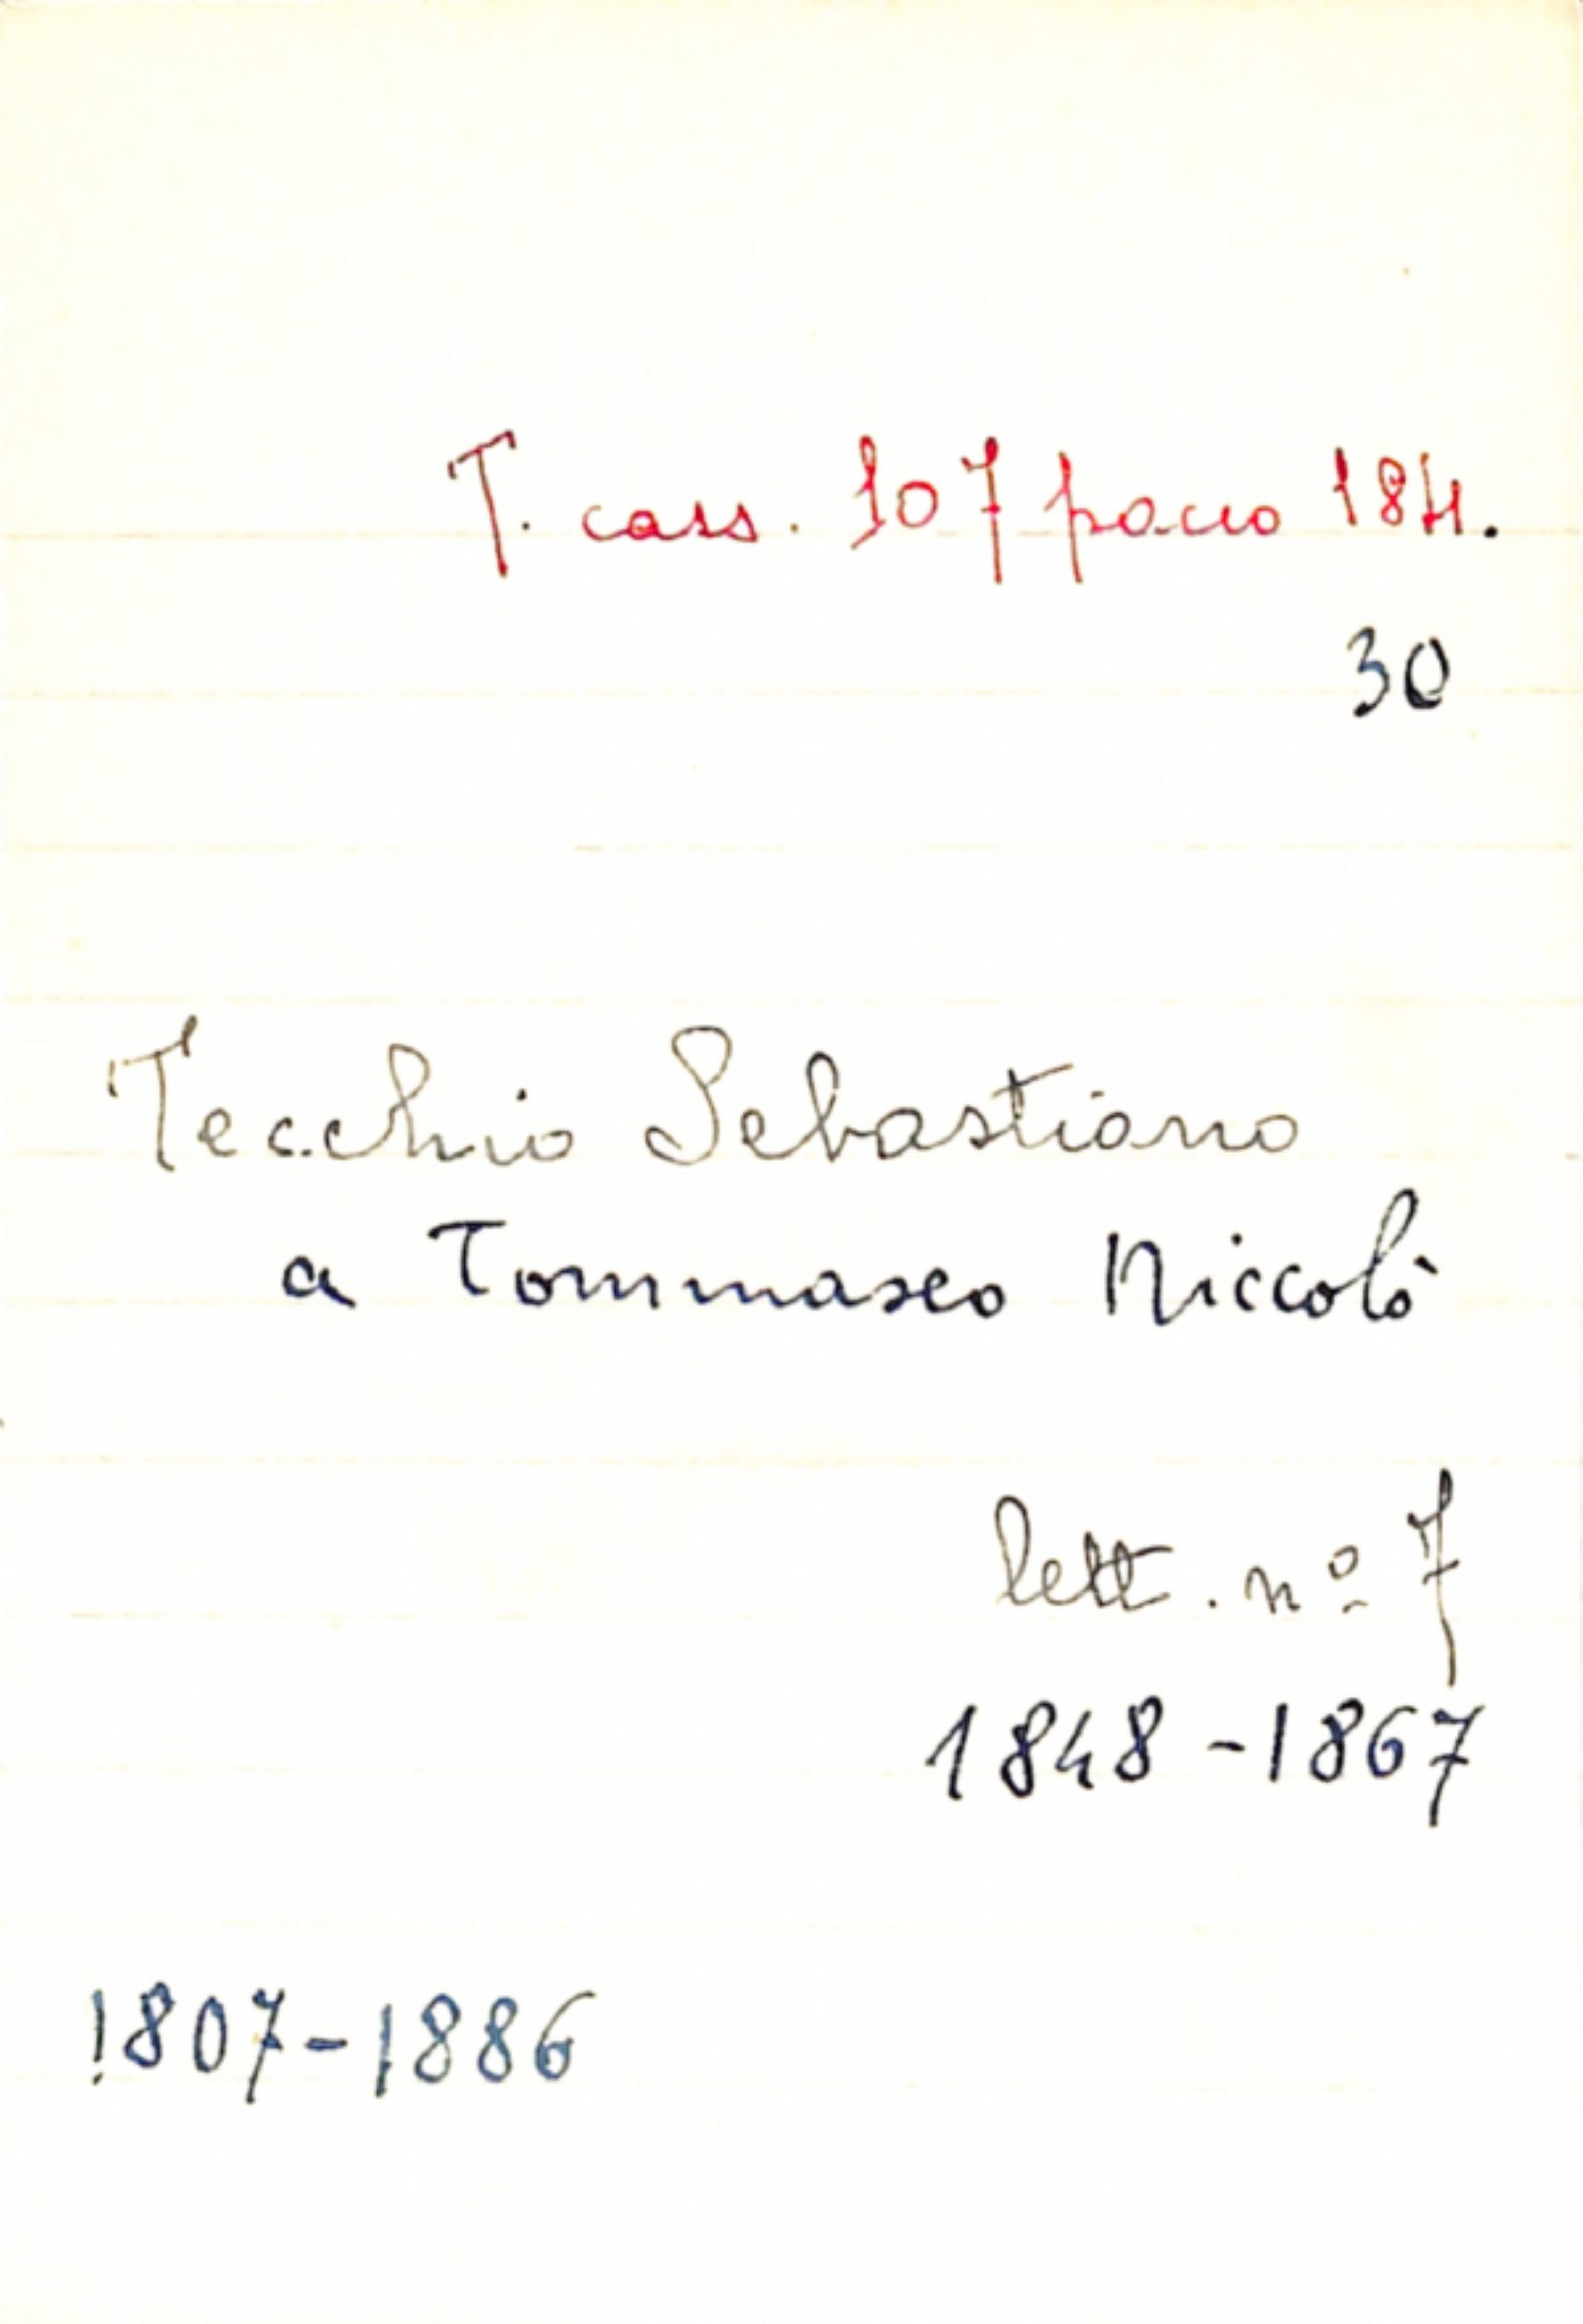 T. cass. 107 pacco 184.
30
Tecchio Sebastiano
a Tommaseo Niccolò
lett. nº 7
1848-1867
1807-1886